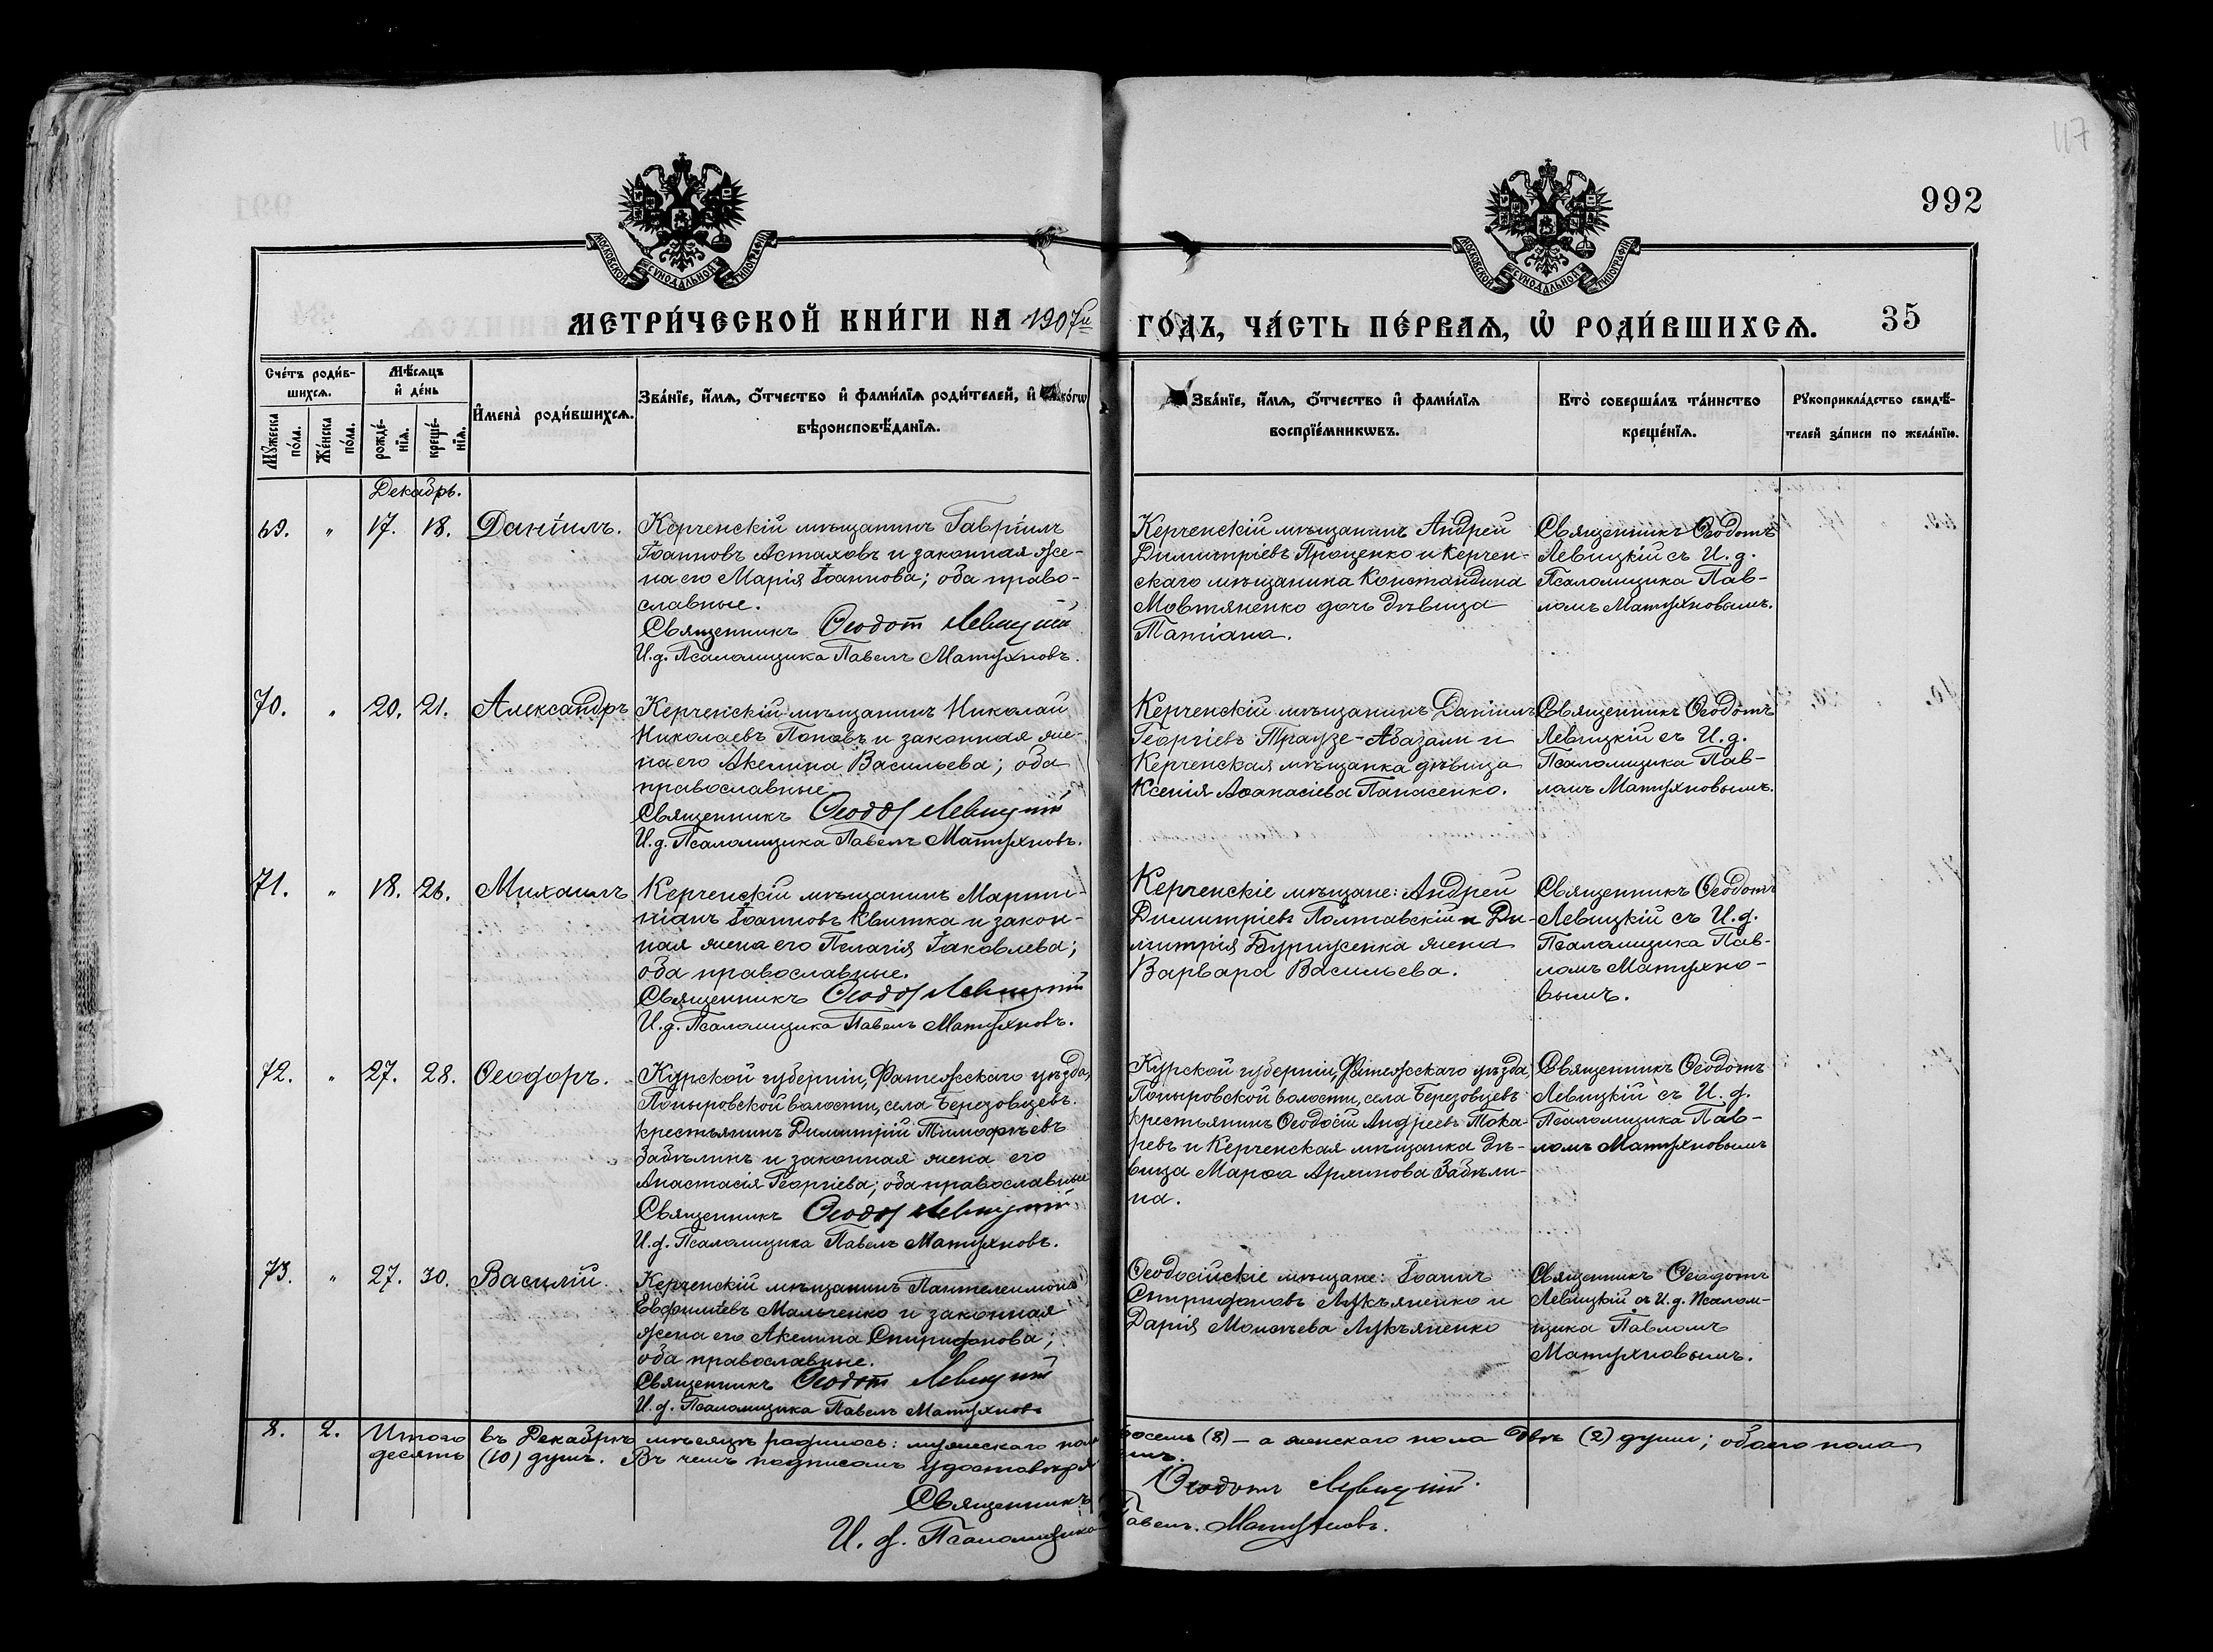 117
992
МОСКОВСКОЙ СѴНОДАЛЬНОЙ ТИПОГРАФІИ
МОСКОВСКОЙ СѴНОДАЛЬНОЙ ТИПОГРАФІИ
МЕТРИ́ЧЕСКОЙ КНИ́ГИ НА 1907й ГО́ДЪ, ЧА́СТЬ ПЕ́РВАѦ, Ѡ҆ РОДИ́ВШИХСѦ. 35
Сче́тъ роди́в-
шихсѧ.
Мꙋ́жеска
по́ла.
Же́нска
по́ла.
Мѣ́сѧцъ
и҆ де́нь
рожде́-
нїѧ.
креще́-
нїѧ.
И҆мена̀ роди́вшихсѧ.
Зва́нїе, и҆́мѧ, ѻ҆́тчество и҆ фами́лїѧ роди́телей, и҆ како́гѡ
вѣроисповѣ́данїѧ.
Зва́нїе, и҆́мѧ, ѻ҆́тчество и҆ фами́лїѧ
воспрїе́мникѡвъ.
Кто̀ соверша́лъ та́инство
креще́нїѧ.
Рꙋкоприкла́дство свидѣ́-
телей за́писи по жела́нїю.
Декабрь.
69. " 17. 18. Даніилъ.
Керченскій мѣщанинъ Гавріилъ
Іоанновъ Астаховъ и законная же-
на его Марія Іоаннова; оба право-
славные.
Священникъ Ѳеодот Левицкій
И.д. Псаломщика Павелъ Матухновъ.
Керченскій мѣщанинъ Андрей
Димитріевъ Проценко и Керчен-
скаго мѣщанина Константина
Мовтяненко дочь дѣвица
Татіана.
Священникъ Ѳеодотъ
Левицкій съ И.д.
Псаломщика Пав-
ломъ Матухновымъ.
70. " 20. 21. Александръ
Керченскій мѣщанинъ Николай
Николаевъ Поповъ и законная же-
на его Акелина Васильева; оба
православные.
Священникъ Ѳеодот Левицкій
И.д. Псаломщика Павелъ Матухновъ.
Керченскій мѣщанинъ Даніилъ
Георгіевъ Траузе-Абазали и
Керченская мѣщанка дѣвица
Ксенія Аѳанасіева Панасенко.
Священникъ Ѳеодотъ
Левицкій съ И.д.
Псаломщика Пав-
ломъ Матухновымъ.
71. " 18. 26. Михаилъ
Керченскій мѣщанинъ Марти-
ніанъ Іоанновъ Квитка и закон-
ная жена его Пелагія Іаковлева;
оба православные.
Священникъ Ѳеодот Левицкій
И.д. Псаломщика Павелъ Матухновъ.
Керченскіе мѣщане: Андрей
Димитріевъ Полтавскій и Ди-
митрія жена
Варвара Васильева.
Священникъ Ѳеодотъ
Левицкій съ И.д.
Псаломщика Пав-
ломъ Матухно-
вымъ.
72. " 27. 28. Ѳеодоръ.
Курской губерніи, Фатежскаго уѣзда,
Поныровской волости, села Березовцевъ
крестьянинъ Димитрій Тимофѣевъ
Забѣлинъ и законная жена его
Анастасія Георгіева; оба православные
Священникъ Ѳеодот Левицкій
И.д. Псаломщика Павелъ Матухновъ.
Курской губерніи, Фатежскаго уѣзда,
Поныровской волости, села Березовцевъ
крестьянинъ Ѳеодосій Андреевъ Тока-
ревъ и Керченская мѣщанка дѣ-
вица Марѳа Архипова Забѣли-
на.
Священникъ Ѳеодотъ
Левицкій съ И.д.
Псаломщика Пав-
ломъ Матухновымъ
73. " 27. 30. Василій.
Керченскій мѣщанинъ Пантелеимонъ
Евфиміевъ Мальченко и законная
жена его Акелина Спиридонова;
оба православные.
Священникъ Ѳеодот Левицкій
И.д. Псаломщика Павелъ Матухновъ
Ѳеодосійскіе мѣщане: Іоаннъ
Спиридоновъ Лукъяненко и
Дарія Моисѣева Лукъяненко
Священникъ Ѳеодотъ
Левицкій съ И.д. Псалом-
щика Павломъ
Матухновымъ.
8. 2. Итого въ Декабрѣ мѣсяцѣ родилось: мужескаго пола восемь (8) – а женскаго пола двѣ (2) души; обоего пола
десять (10) душъ. Въ чемъ подписомъ удостовѣряемъ.
Священникъ Ѳеодотъ Левицкій.
И.д. Псаломщика Павелъ Матухновъ.